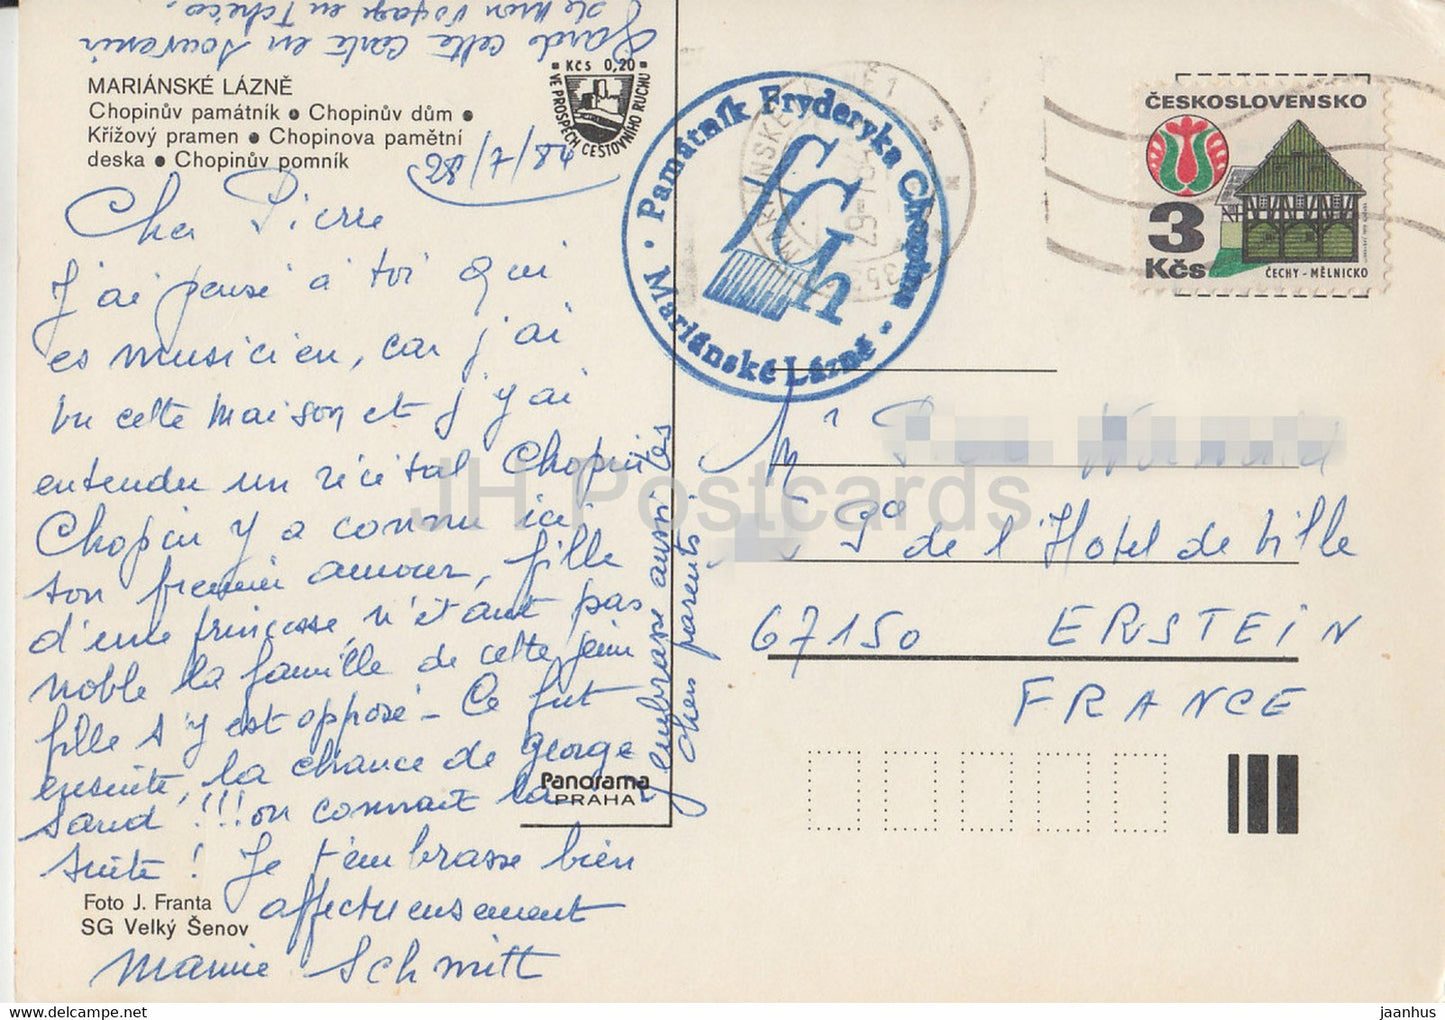 Garde cette carte en souvenir
de mon voyage en Tchéco.
MARIÁNSKÉ LÁZNĚ
Chopinův památník • Chopinův dům •
Křížový pramen • Chopinova pamětní
deska • Chopinův pomník
Kčs 0,20
VE PROSPĚCH CESTOVNÍHO RUCHU
28/7/84
Cher Pierre
J'ai pensé à toi qui
es musicien, car j'ai
vu cette maison et j'y ai
entendu un récital Chopin
Chopin y a connu ici
son premier amour, fille
d'une princesse, n'étant pas
noble la famille de cette jeune
fille s'y est opposé - Ce fut
ensuite, la chance de George
Sand !!! on connait la
suite ! Je t'embrasse bien
affectueusement
Mamie Schmitt
J'embrasse aussi tes
chers parents
Panorama
PRAHA
Foto J. Franta
SG Velký Šenov
Památník Fryderyka Chopina
Mariánské Lázně
fCh
ČESKOSLOVENSKO
3
Kčs
ČECHY - MĚLNICKO
Mr
Pl de l'Hotel de Ville
67150 ERSTEIN
FRANCE
JH Postcards
jaanhus.com